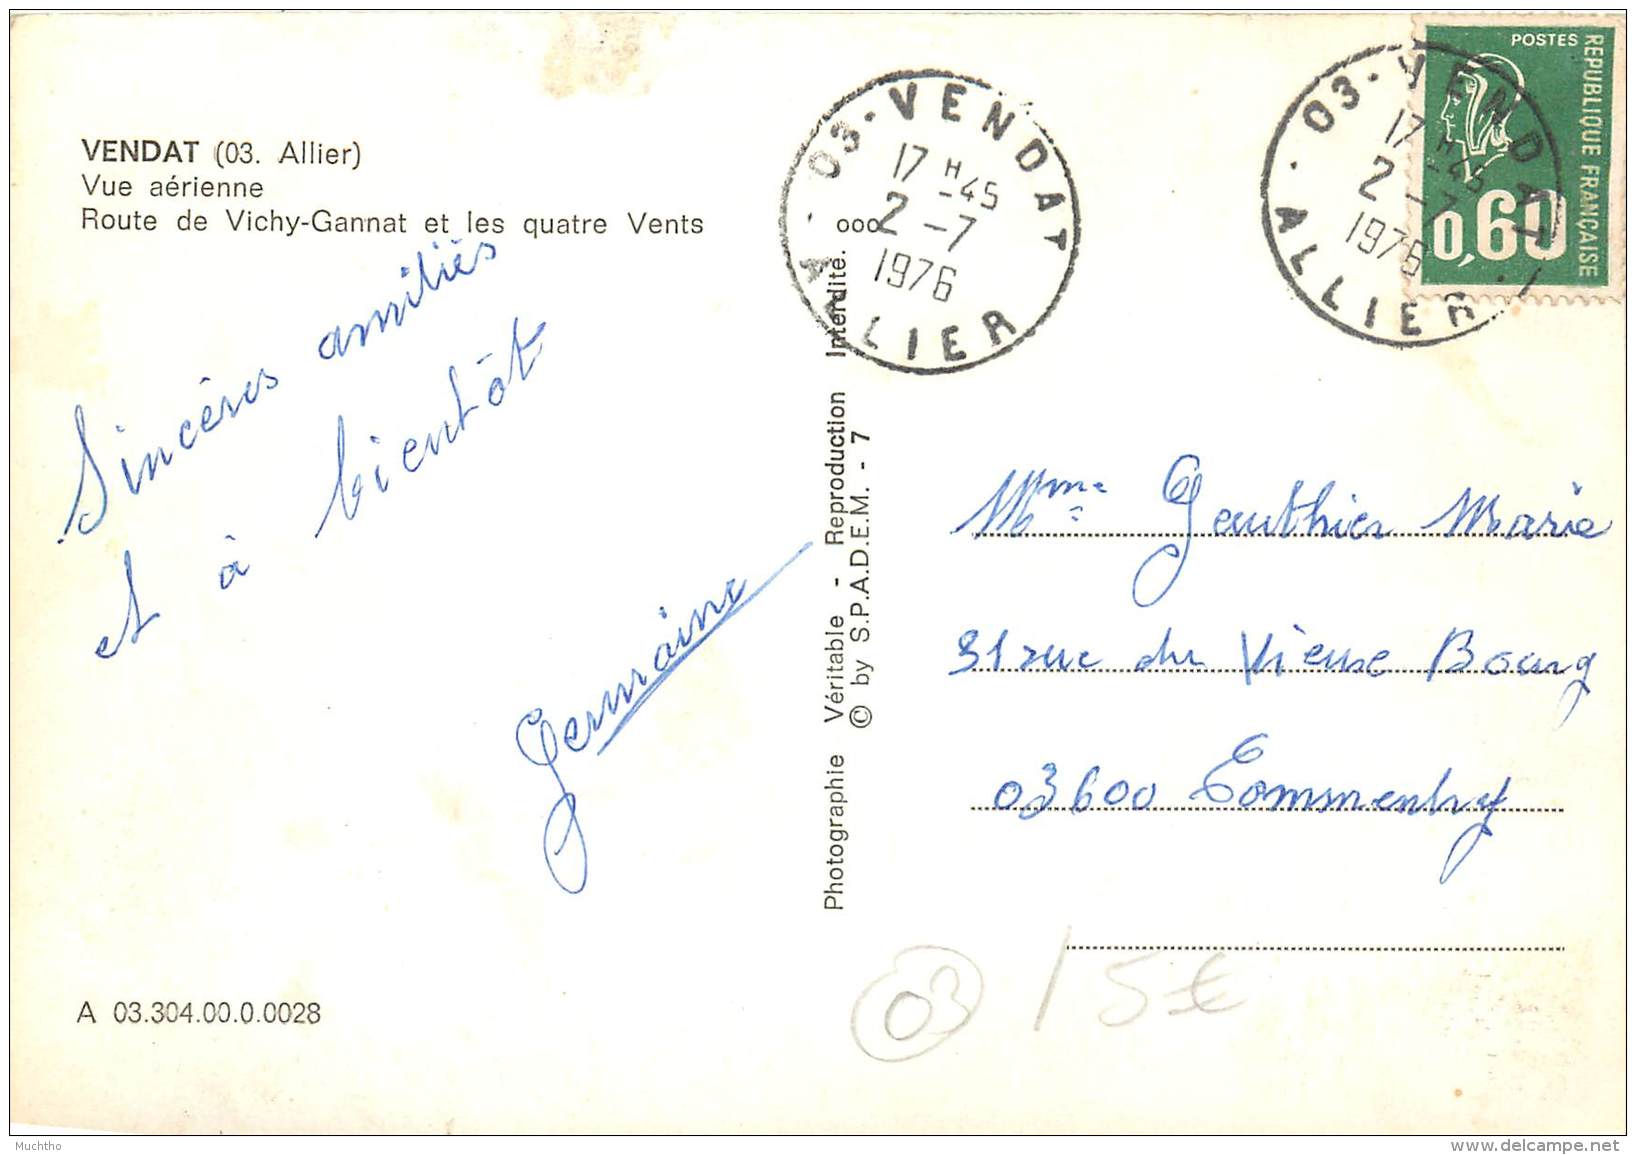 VENDAT (03. Allier)
Vue aérienne
Route de Vichy-Gannat et les quatre Vents
Sincères amitiés
et à bientôt
Germaine
A 03.304.00.0.0028
Photographie Véritable - Reproduction Interdite.
© by S.P.A.D.E.M. - 7
ooo
03-VENDAT
17 H-45
2 -7
1976
ALLIER
03-VENDAT
17 H-45
2 -7
1976
ALLIER
POSTES
REPUBLIQUE FRANÇAISE
0,60
Mme Gauthier Marie
31 rue du Vieux Bourg
03600 Commentry
03
15€
Muchtho
www.delcampe.net